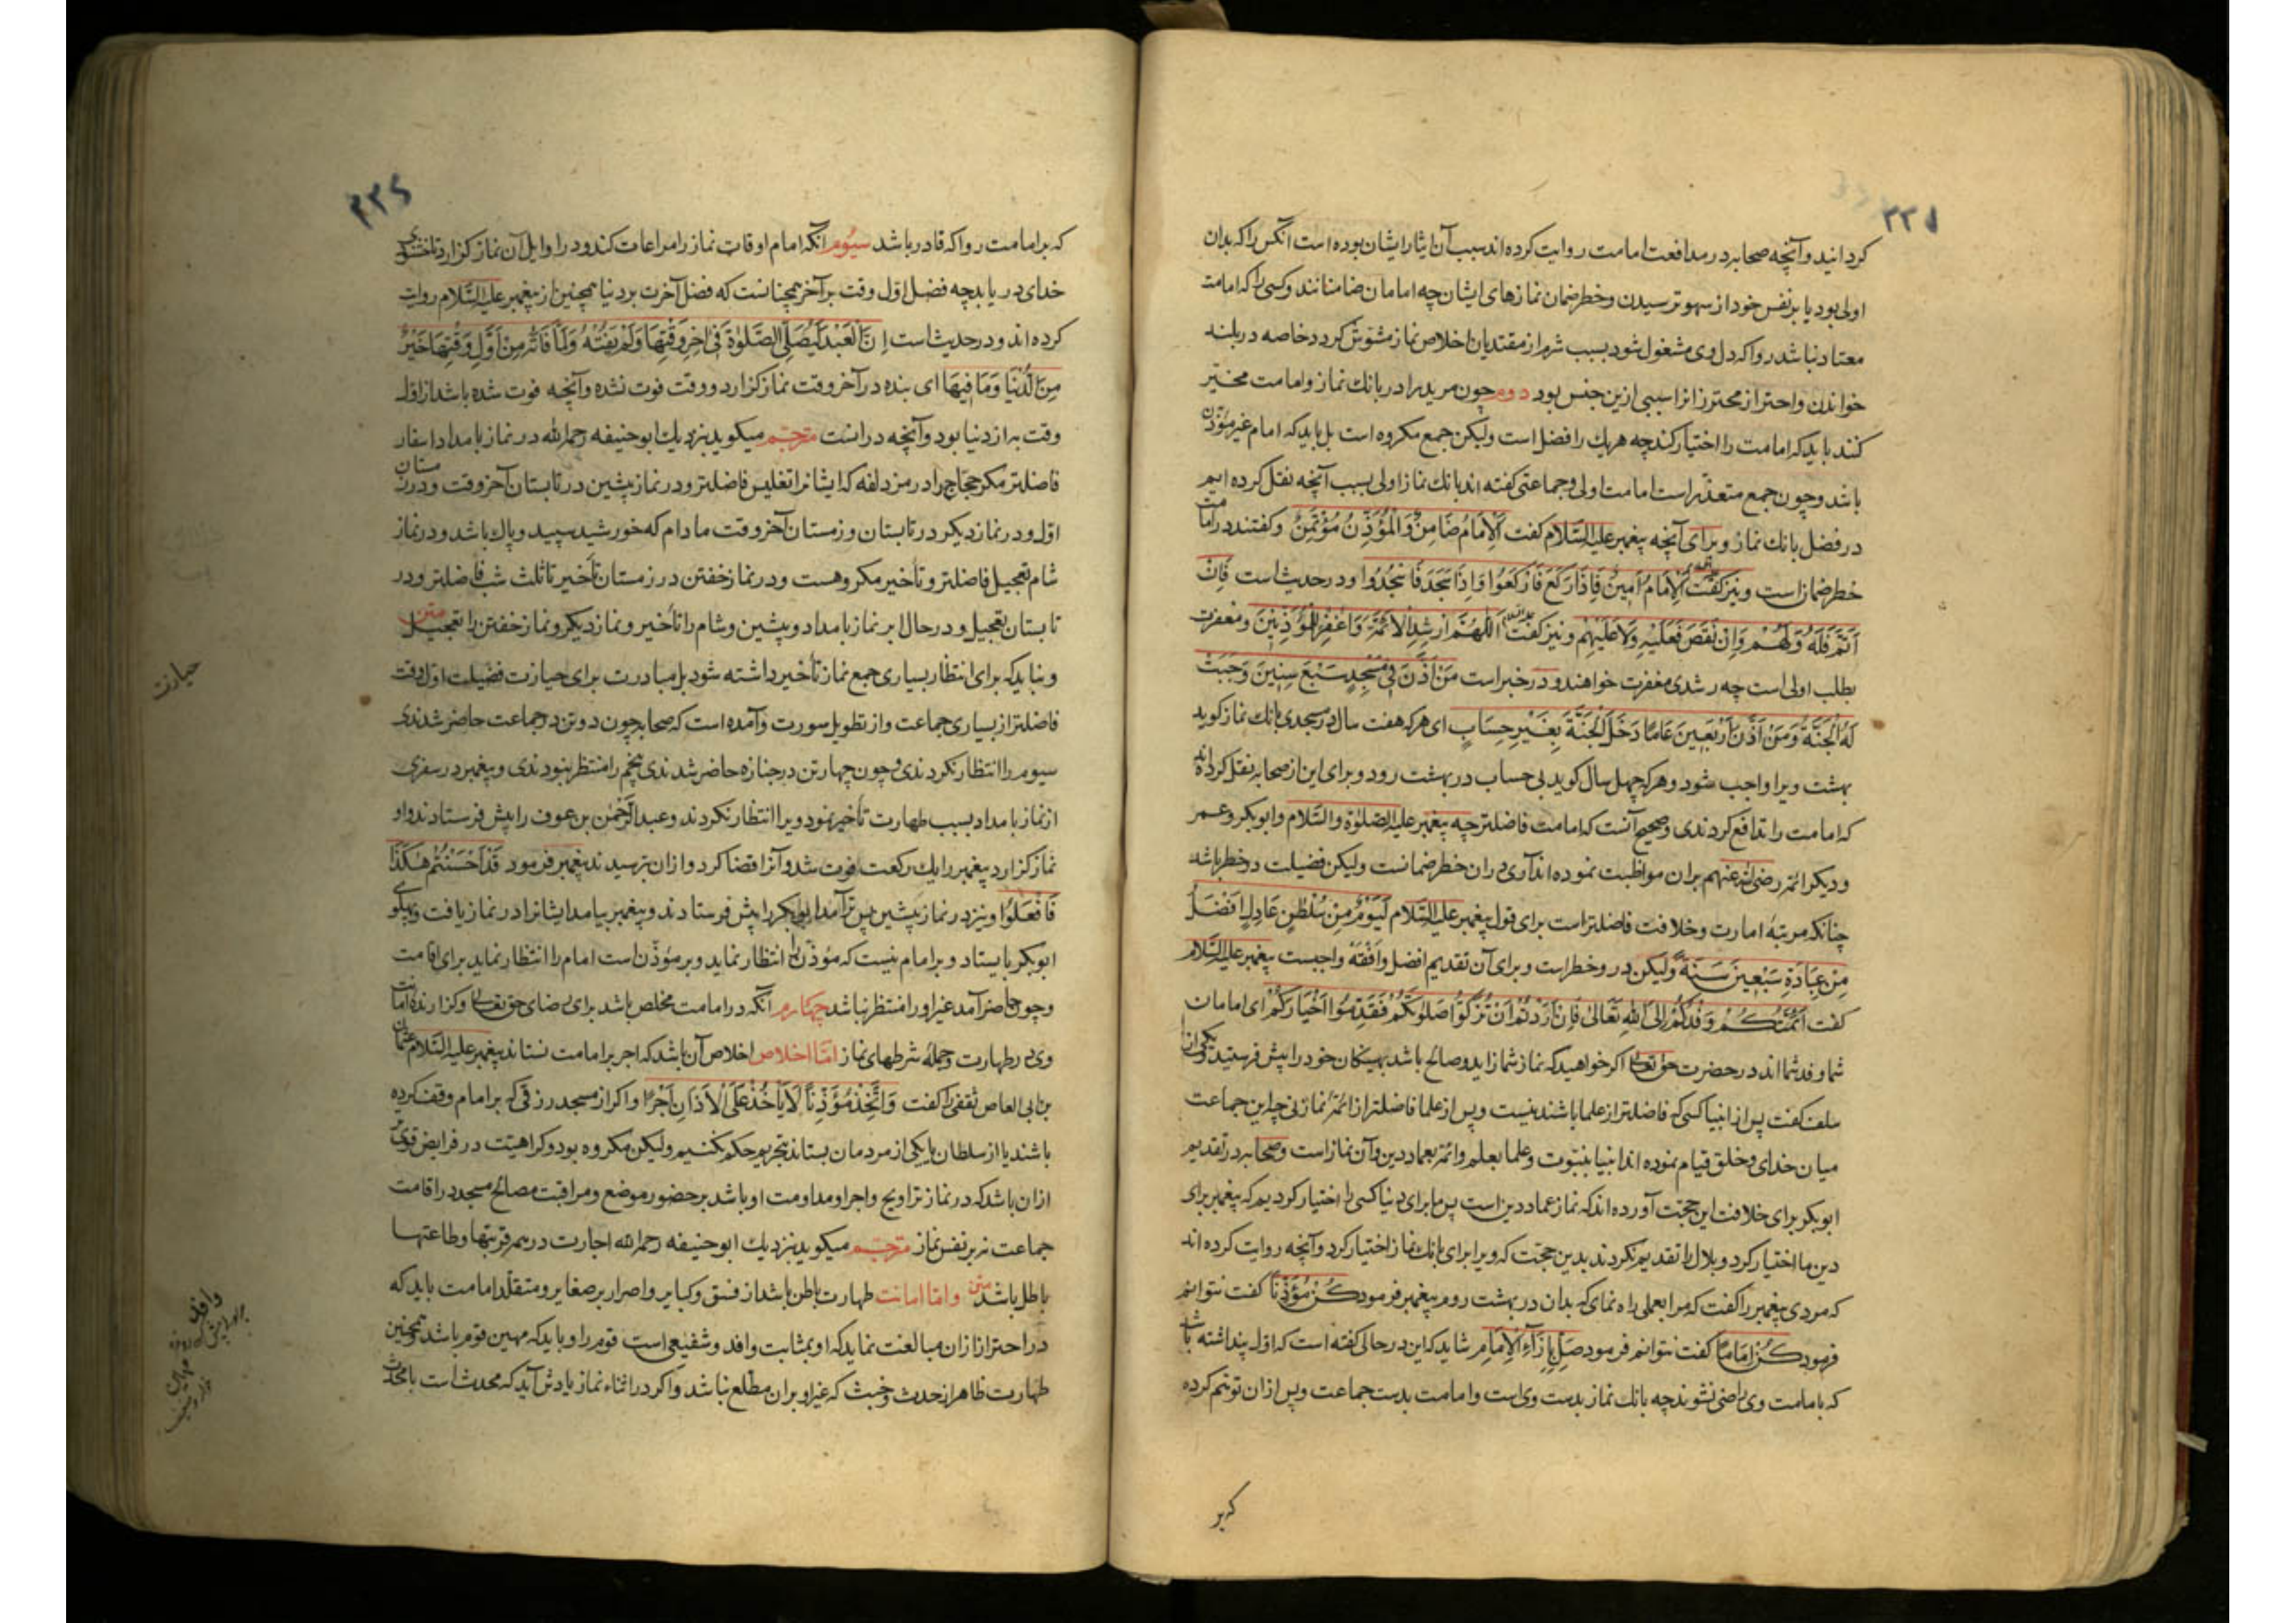 ۲۳۱
کردانید و آنچه صحابه در مدافعت امامت روایت کرده اند سبب آن ایثار ایشان بوده است آنکس را که بدان
اولی بود یا بر نفس خود از سهو ترسیدن و خطر ضمان نمازهای ایشان چه امامان ضامنانند و کسی را که امامت
معتاد نباشد روا که دل وی مشغول شود بسبب شرم از مقتدیان اخلاص نماز مشوّش کردد خاصه در بلند
خواندن و احتراز محترز انرا سببی ازین جنس بود دوم چون مرید را در بانك نماز و امامت مخیّر
کنند باید که امامت را اختیار کند چه هر یك را فضل است ولیکن جمع مکروه است بل باید که امام غیر مؤذن
باشد و چون جمع متعذّر است امامت اولی و جماعتی کفته اند بانك نماز اولی بسبب آنچه نقل کرده ایم
در فضل بانك نماز و برای آنچه پیغمبر علیه السّلام کفت اَلْاِمَامُ ضَامِنٌ وَالْمُؤَذِّنُ مُؤْتَمَنٌ و کفتند در امامت
خطر ضمان است و نیز کفت اَلْاِمَامُ اَمِینٌ فَاِذَا رَکَعَ فَارْکَعُوا وَاِذَا سَجَدَ فَاسْجُدُوا و در حدیث است فَاِنْ
اَتَمَّ فَلَهُ وَلَهُمْ وَاِنْ نَقَصَ فَعَلَیْهِ وَلَا عَلَیْهِمْ و نیز کفت اَللّٰهُمَّ اَرْشِدِ الْاَئِمَّةَ وَاغْفِرْ لِلْمُؤَذِّنِینَ و مغفرت
بطلب اولی است چه رشد برای مغفرت خواهند و در خبر است مَنْ اَذَّنَ فِی مَسْجِدٍ سَبْعَ سِنِینَ وَجَبَتْ
لَهُ الْجَنَّةُ وَمَنْ اَذَّنَ اَرْبَعِینَ عَامًا دَخَلَ الْجَنَّةَ بِغَیْرِ حِسَابٍ ای هر که هفت سال در مسجدی بانك نماز کوید
بهشت ویرا واجب شود و هر که چهل سال کوید بی حساب در بهشت رود و برای این از صحابه نقل کرده اند
که امامت را تدافع کردندی و صحیح آنست که امامت فاضلتر چه پیغمبر علیه الصّلوة والسّلام و ابوبکر و عمر
و دیکر ائمّه رضی الله عنهم بران مواظبت نموده اند آری دران خطر ضمانست ولیکن فضیلت در خطر باشد
چنانکه مرتبهٔ امارت و خلافت فاضلتر است برای قول پیغمبر علیه السّلام لَیَوْمٌ مِنْ سُلْطٰنٍ عَادِلٍ اَفْضَلُ
مِنْ عِبَادَةِ سَبْعِینَ سَنَةً ولیکن در و خطر است و برای آن تقدیم افضل و اَفْقَه واجبست پیغمبر علیه السّلام
کفت اَئِمَّتُکُمْ وَفْدُکُمْ اِلَی اللهِ تَعَالیٰ فَاِنْ اَرَدْتُمْ اَنْ تُزَکُّوا صَلٰوتَکُمْ فَقَدِّمُوا اَخْیَارَکُمْ ای امامان
شما وفد شما اند در حضرت حق تعالی اکر خواهید که نماز شما زاید و صالح باشد بهینکان خود را پیش فرستید و یکی از
سلف کفت پس از انبیا کسی که فاضلتر از علما باشند نیست و پس از علما فاضلتر از ائمّهٔ نماز نی چه این جماعت
میان خدای و خلق قیام نموده اند انبیا بنبوّت و علما بعلم و ائمّه بعماد دین و آن نماز است و صحابه در تقدیم
ابوبکر برای خلافت این حجّت آورده اند که نماز عماد دین است پس ما برای دنیا کسی را اختیار کردیم که پیغمبر برای
دین ما اختیار کرد و بلال را تقدیم نکردند بدین حجّت که ویرا برای بانك نماز اختیار کرد و آنچه روایت کرده اند
که مردی پیغمبر را کفت که مرا بعملی راه نمای که بدان در بهشت روم پیغمبر فرمود کُنْ مُؤَذِّنًا کفت نتوانم
فرمود کُنْ اِمَامًا کفت نتوانم فرمود صَلِّ بِاِزَآءِ الْاِمَامِ شاید که این در حالی کفته است که اول پنداشته باشد
که بامامت وی راضی نشوند چه بانك نماز بدست وی است و امامت بدست جماعت و پس ازان توهّم کرده
که بر
۲۳۲
که بر امامت روا که قادر باشد سیّوم آنکه امام اوقات نماز را مراعات کند و در اوایل آن نماز کزارد تا خشنودی
خدای دریابد چه فضل اوّل وقت بر آخر همچنانست که فضل آخرت بر دنیا همچنین از پیغمبر علیه السّلام روایت
کرده اند و در حدیث است اِنَّ الْعَبْدَ لَیُصَلِّی الصَّلٰوةَ فِی اٰخِرِ وَقْتِهَا وَلَمْ یَفُتْهُ وَلَمَا فَاتَهُ مِنْ اَوَّلِ وَقْتِهَا خَیْرٌ
مِنَ الدُّنْیَا وَمَا فِیهَا ای بنده در آخر وقت نماز کزارد و وقت فوت نشده و آنچه فوت شده باشد از اول
وقت به از دنیا بود و آنچه در انست مترجم میکوید بنزدیك ابوحنیفه رحمه الله در نماز بامداد اسفار
فاضلتر مکر حجّاج را در مزدلفه که ایشانرا تغلیس فاضلتر و در نماز پیشین در تابستان آخر وقت و در زمستان
اول و در نماز دیکر در تابستان و زمستان آخر وقت مادام که خورشید سپید و پاك باشد و در نماز
شام تعجیل فاضلتر و تأخیر مکروهست و در نماز خفتن در زمستان تأخیر تا ثلث شب فاضلتر و در
تابستان تعجیل و در حال ابر نماز بامداد و پیشین و شام را تأخیر و نماز دیکر و نماز خفتن را تعجیل متن
و نباید که برای انتظار بسیاری جمع نماز تأخیر داشته شود بل مبادرت برای حیازت فضیلت اول وقت
فاضلتر از بسیاری جماعت و از تطویل سورت و آمده است که صحابه چون دو تن در جماعت حاضر شدندی
سیوم را انتظار نکردندی و چون چهار تن در جنازه حاضر شدندی پنجم را منتظر نبودندی و پیغمبر در سفری
از نماز بامداد بسبب طهارت تأخیر نمود ویرا انتظار نکردند و عبد الرّحمن بن عوف را پیش فرستادند و او
نماز کزارد پیغمبر را یك رکعت فوت شد و آنرا قضا کرد و ازان بترسیدند پیغمبر فرمود قَدْ اَحْسَنْتُمْ هٰکَذَا
فَافْعَلُوا و نیز در نماز پیشین پس تر آمد ابوبکر را پیش فرستادند و پیغمبر بیامد ایشانرا در نماز یافت و پهلوی
ابوبکر بایستاد و بر امام نیست که مؤذن را انتظار نماید و بر مؤذّن است امام را انتظار نماید برای اقامت
و چون حاضر آمد غیر او را منتظر نباشد چهارم آنکه در امامت مخلص باشد برای رضای حق تعالی و کزارندهٔ امانت
وی در طهارت و جملهٔ شرطهای نماز امّا اخلاص اخلاص آن باشد که اجر بر امامت نستاند پیغمبر علیه السّلام عثمان
بن ابی العاص ثقفی را کفت وَاتَّخِذْ مُؤَذِّنًا لَا یَأْخُذُ عَلَی الْاَذَانِ اَجْرًا و اکر از مسجد رزقی که بر امام وقف کرده
باشند یا از سلطان یا یکی از مردمان بستاند بتحریم حکم نکنیم ولیکن مکروه بود و کراهیّت در فرایض قوی تر
ازان باشد که در نماز تراویح و اجر او مداومت او باشد بر حضور موضع و مراقبت مصالح مسجد در اقامت
جماعت نه بر نفس نماز مترجم میکوید بنزدیك ابوحنیفه رحمه الله اجارت در همه قربتها و طاعتها
باطل باشد متن و امّا امانت طهارت باطن باشد از فسق و کبایر و اصرار بر صغایر و متقلّد امامت باید که
در احتراز ازان مبالغت نماید که او بمثابت وافد و شفیعی است قوم را و باید که مهین قوم باشد و همچنین
طهارت ظاهر از حدث و خبث که غیر او بران مطلع نباشد و اکر در اثناء نماز یادش آید که محدث است یا محدث
حیازت
وافد